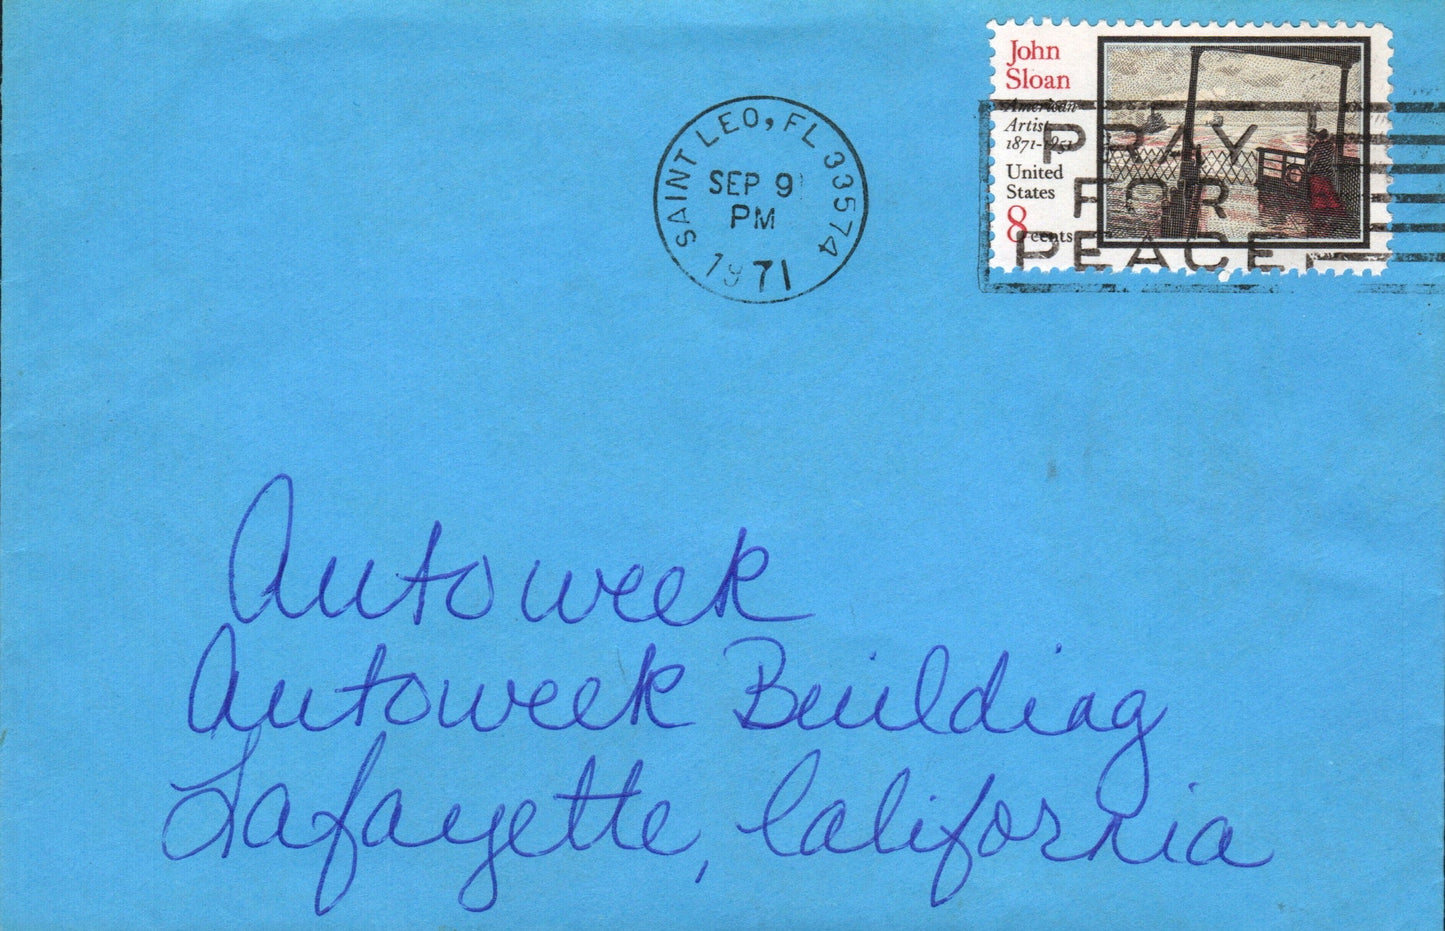 John
Sloan
American
Artist
1871-1951
United
States
8 cents
SAINT LEO, FL 33574
SEP 9
PM
1971
PRAY
FOR
PEACE
Autoweek
Autoweek Building
Lafayette, California